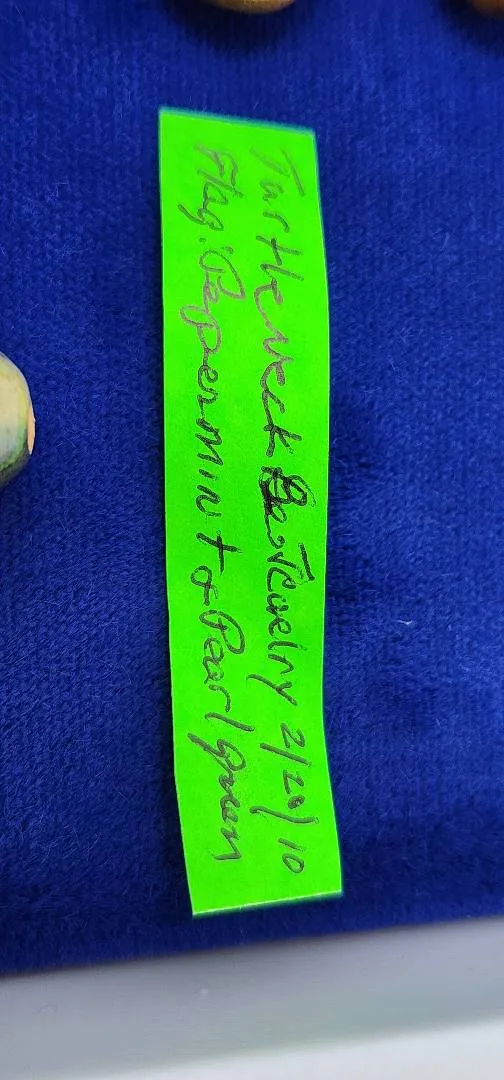 Turtleneck Jewelry 2/20/10
Flag: Pepermint & Pearl green